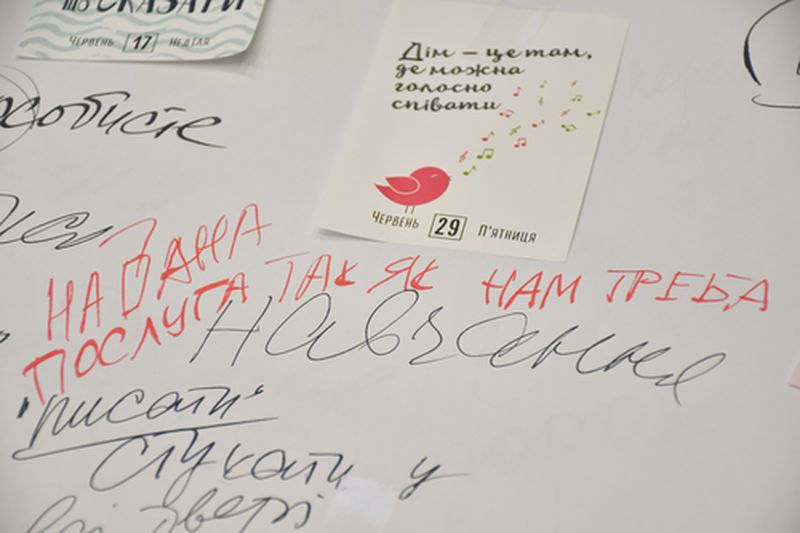 що СКАЗАТИ
ЧЕРВЕНЬ 17 НЕДІЛЯ
Дім – це там,
де можна
голосно
співати
ЧЕРВЕНЬ 29 П'ЯТНИЦЯ
особисте
НАДАНА
ПОСЛУГА ТАК ЯК НАМ ТРЕБА
Навчання
"писати"
стукати у
всі двері